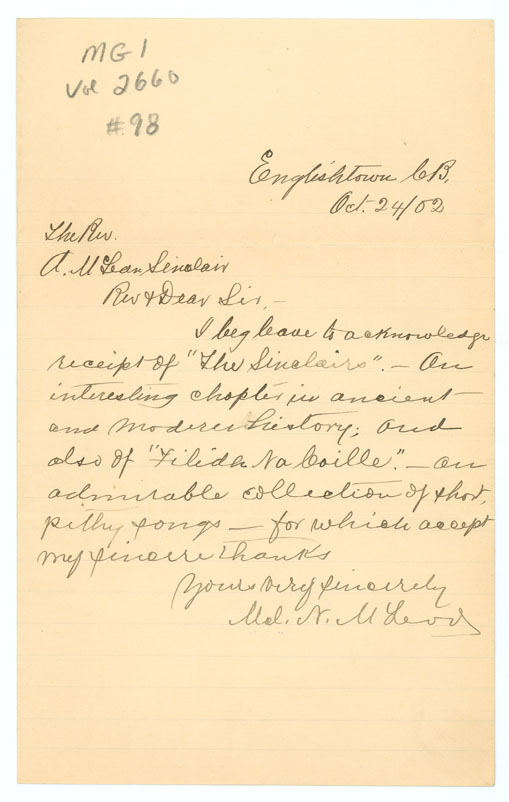 MG1
Vol 2660
#98
Englishtown C.B.
Oct. 24/02
The Rev.
A. McLean Sinclair
Rev & Dear Sir, —
I beg leave to acknowledge
receipt of "The Sinclairs". — An
interesting chapter in ancient
and modern history; and
also of "Filidh Na Coille." — an
admirable collection of short,
pithy songs — for which accept
my sincere thanks
Yours very sincerely
Mal. N. McLeod